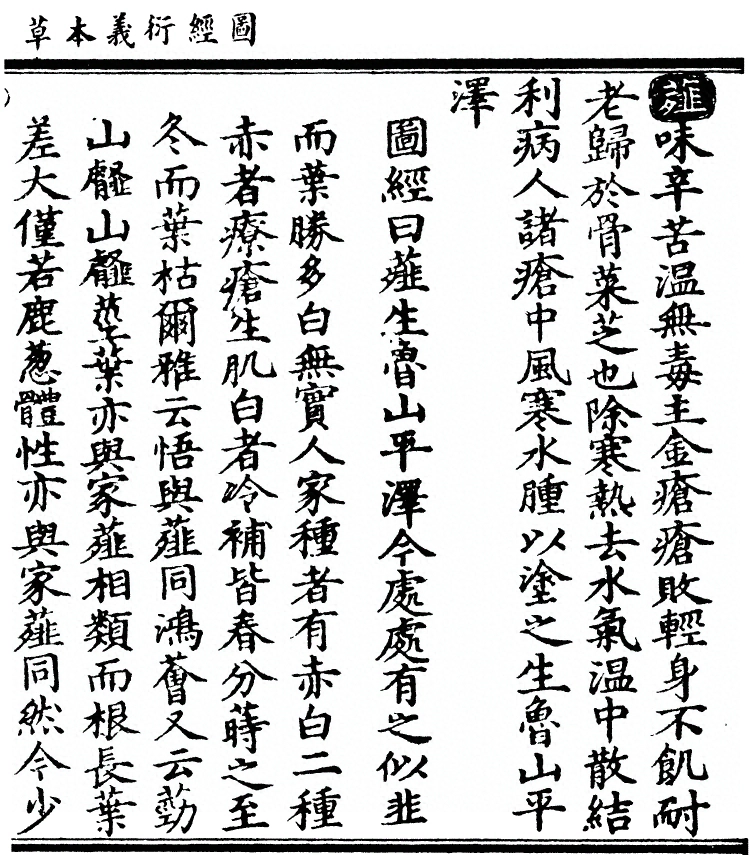 圖經衍義本草
薤味辛苦温無毒主金瘡瘡敗輕身不飢耐
老歸於骨菜芝也除寒熱去水氣温中散結
利病人諸瘡中風寒水腫以塗之生魯山平
澤
圖經曰薤生魯山平澤今處處有之似韭
而葉勝多白無實人家種者有赤白二種
赤者療瘡生肌白者冷補皆春分蒔之至
冬而葉枯爾雅云悟與薤同鴻薈又云葝
山䪥山䪥莖葉亦與家薤相類而根長葉
差大僅若鹿葱體性亦與家薤同然今少